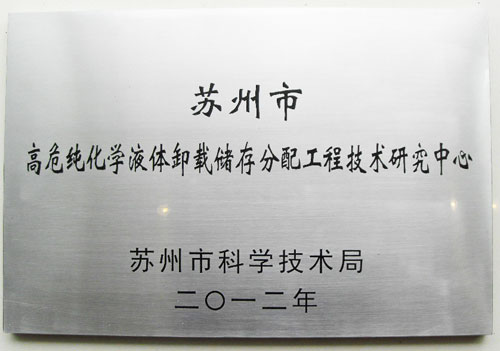 苏州市
高危纯化学液体卸载储存分配工程技术研究中心
苏州市科学技术局
二〇一二年